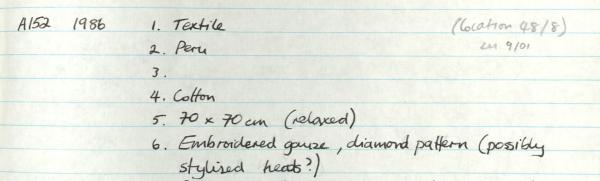 A152 1986 1. Textile (location 48/8)
2. Peru 9/01
3.
4. Cotton
5. 70 x 70 cm (relaxed)
6. Embroidered gauze, diamond pattern (possibly
stylised heads?)